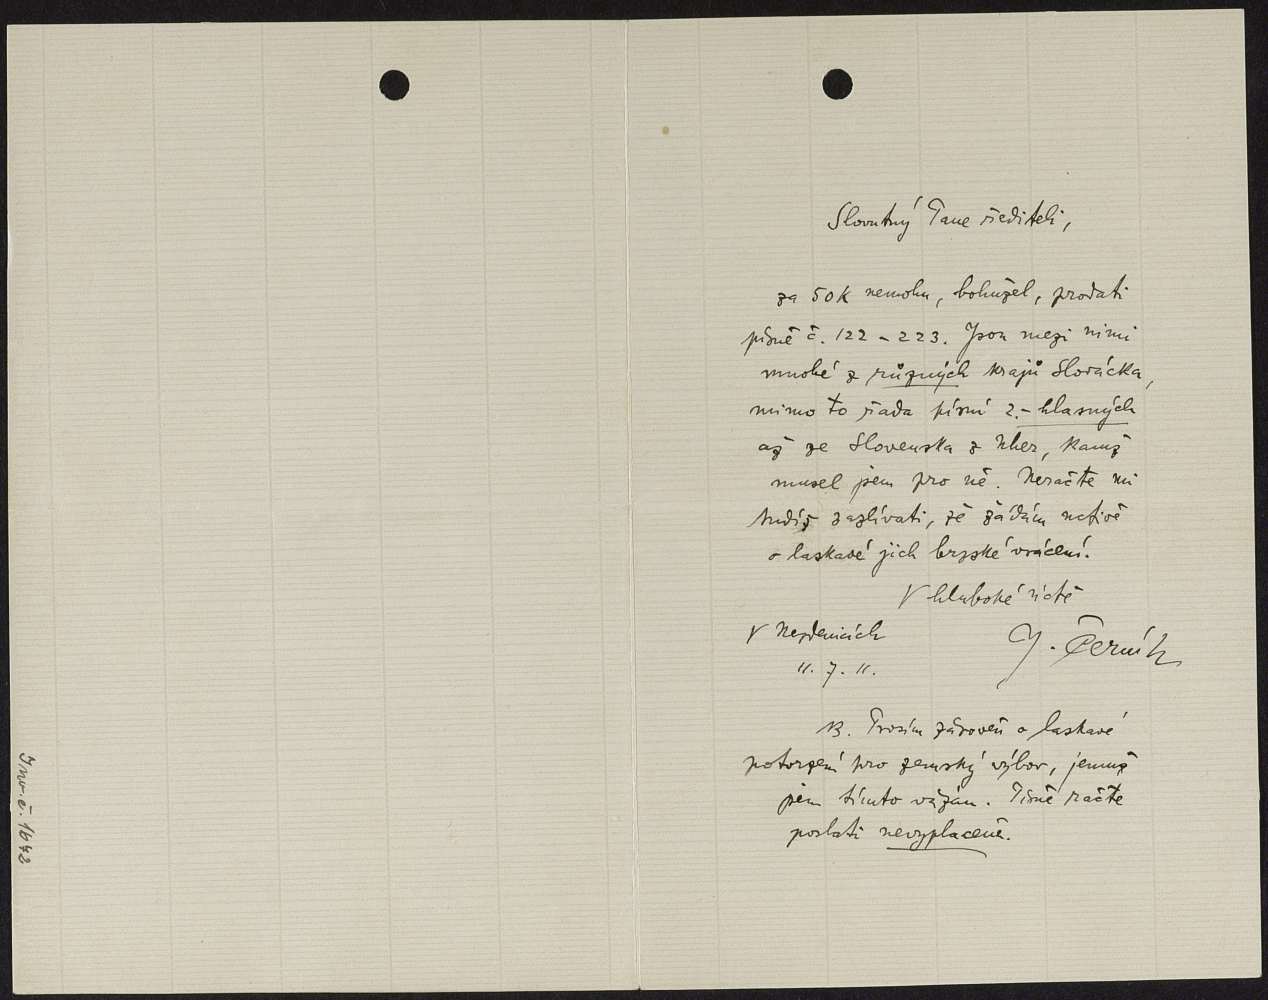 Slovutný Pane řediteli,
za 50K nemohu, bohužel, prodati
písně č. 122 – 223. Jsou mezi nimi
mnohé z různých krajů Slovácka,
mimo to řada písní 2.-hlasných
až ze Slovenska z Uher, kamž
musel jsem pro ně. Neračte mi
tudíž zazlívati, že žádám uctivě
o laskavé jich brzské vrácení.
V hluboké úctě
V Nezdenicích
J. Černík
11. 7. 11.
NB. Prosím zároveň o laskavé
potvrzení pro zemský výbor, jemuž
jsem tímto vázán. Písně račte
poslati nevyplaceně.
Inv. č. 1642